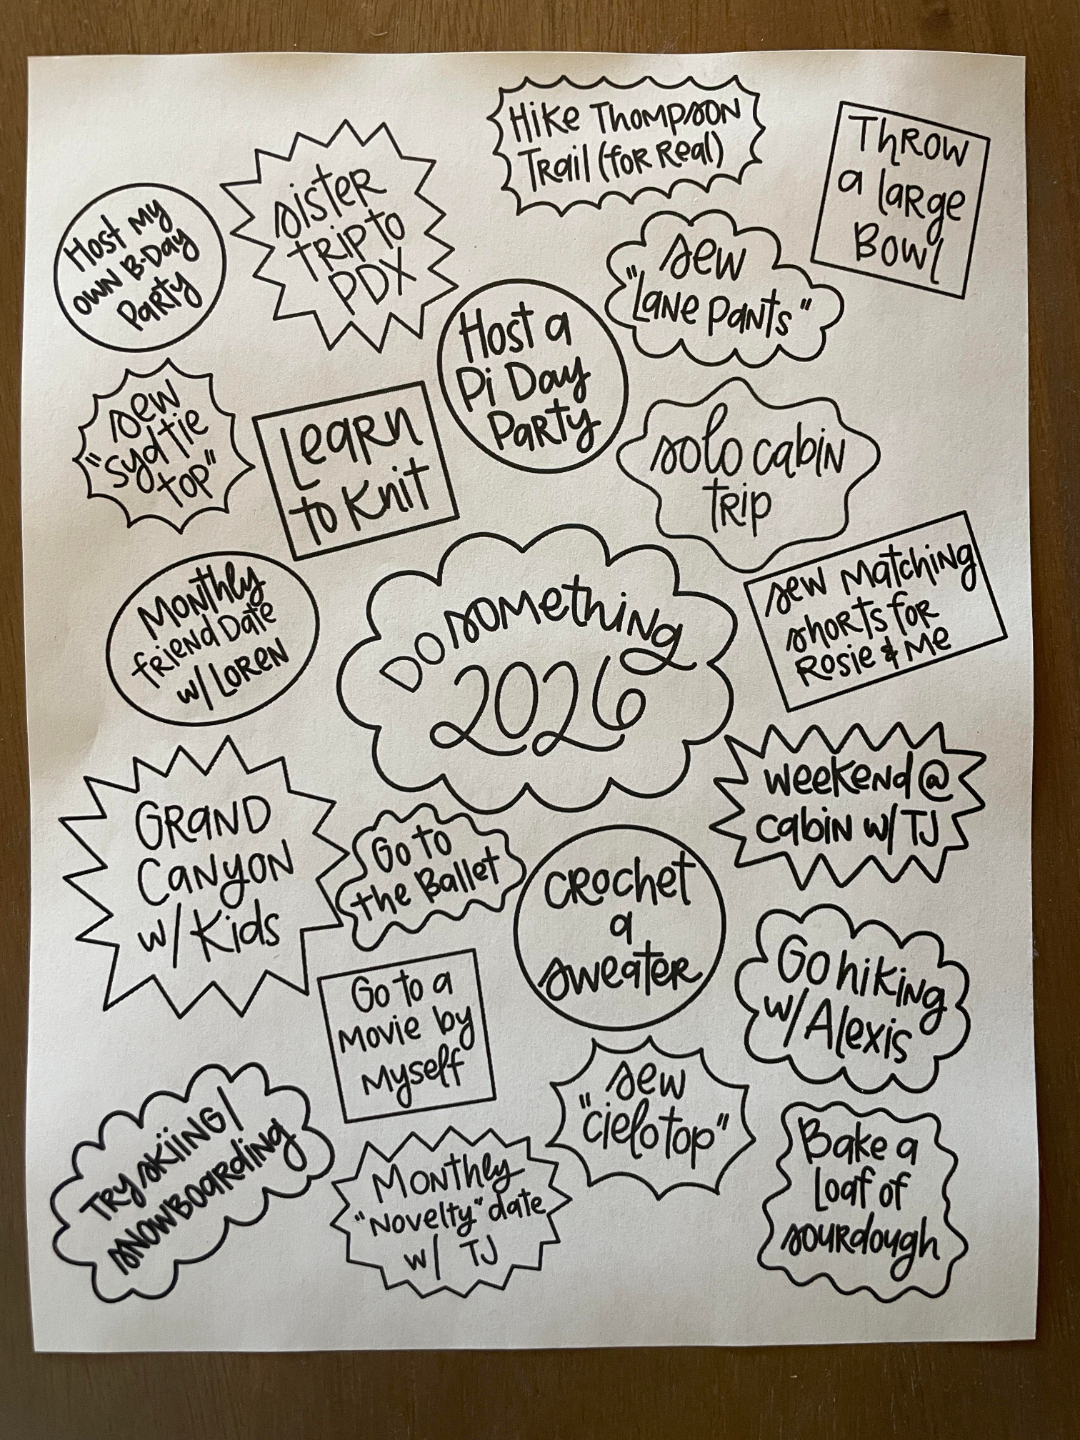 Hike Thompson
Trail (for Real)
Throw
a large
Bowl
sister
trip to
PDX
Host my
own B-Day
Party
sew
"Lane pants"
Host a
Pi Day
Party
sew
"syd tie
top"
Learn
to Knit
solo cabin
trip
sew matching
shorts for
Rosie & Me
Monthly
friend Date
w/ Loren
Do something
2026
weekend @
cabin w/ TJ
Grand
Canyon
w/ Kids
Go to
the Ballet
Crochet
a
sweater
Go hiking
w/ Alexis
Go to a
Movie by
Myself
sew
"cielo top"
Try skiing/
snowboarding
Monthly
"Novelty" date
w/ TJ
Bake a
Loaf of
sourdough